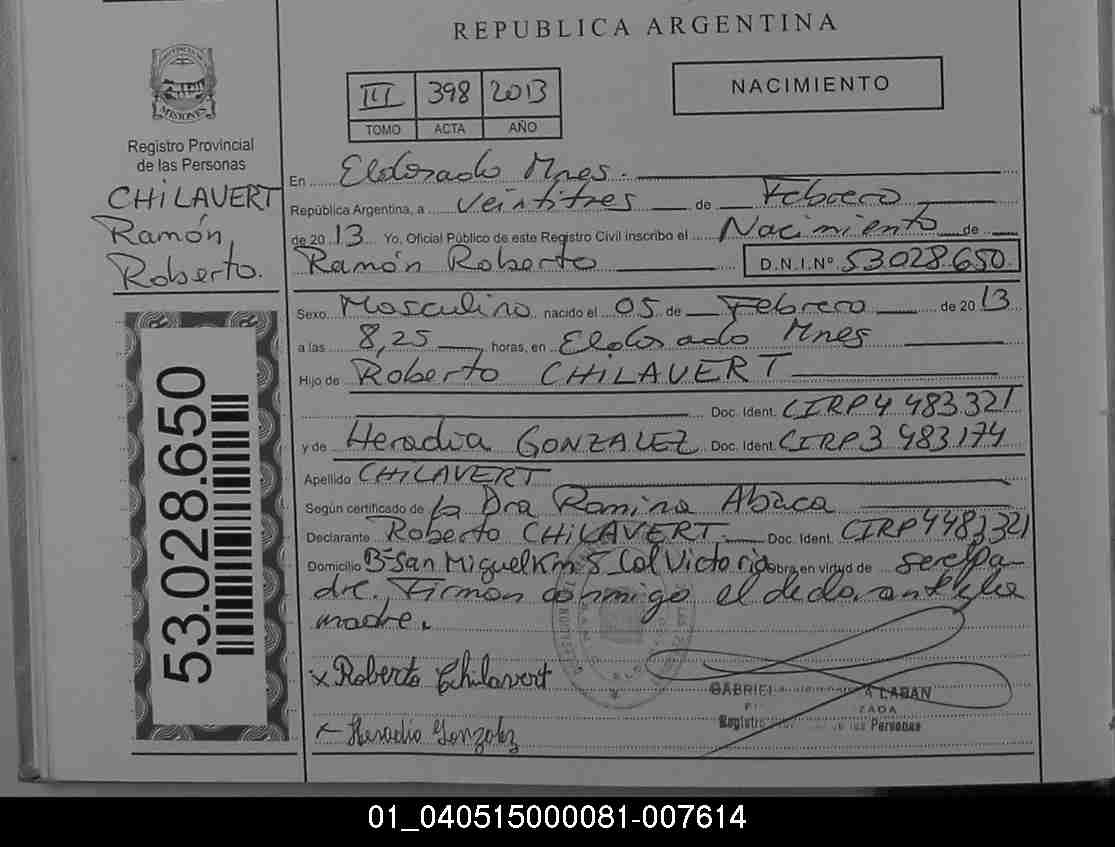 REPUBLICA ARGENTINA
PROVINCIA DE
MISIONES
III 398 2013
TOMO ACTA AÑO
NACIMIENTO
Registro Provincial
de las Personas
CHILAVERT
Ramón
Roberto.
53.028.650
En Eldorado Mnes.
República Argentina, a veintitres de Febrero
de 2013 Yo, Oficial Público de este Registro Civil inscribo el Nacimiento de
Ramón Roberto D.N.I.Nº 53.028.650
Sexo Masculino nacido el 05 de Febrero de 2013
a las 8,25 horas, en Eldorado Mnes
Hijo de Roberto CHILAVERT
Doc. Ident. CIRP4 483.321
y de Heradia GONZALEZ Doc. Ident. CIRP3 483.174
Apellido CHILAVERT
Según certificado de la Dra Romina Abaca
Declarante Roberto CHILAVERT Doc. Ident. CIRP4483321
Domicilio Bº San Miguel Km 5 Col Victoria obra en virtud de ser el pa-
dre. Firman conmigo el declarante y la
madre.
x Roberto Chilavert
Heradia Gonzalez
GABRIEL LABAN
ZADA
Registro de las Personas
01_040515000081-007614